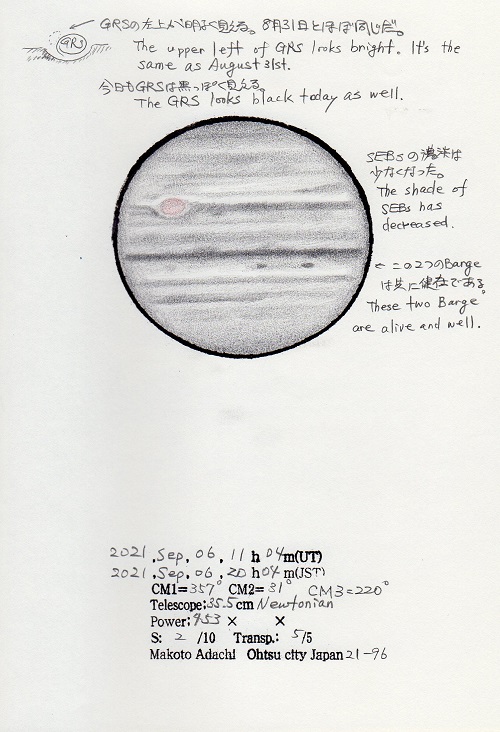 GRSの左上が明るく見える。8月31日とほぼ同じだ。
GRS
The upper left of GRS looks bright. It's the
same as August 31st.
今日もGRSは黒っぽく見える。
The GRS looks black today as well.
SEBsの濃淡は
少なくなった。
The shade of
SEBs has
decreased.
← この2つのBarge
は共に健在である。
These two Barge
are alive and well.
2021.Sep.06.11h04m(UT)
2021.Sep.06.20h04m(JST)
CM1=357° CM2=31° CM3=220°
Telescope:35.5cm Newtonian
Power:453× ×
S: 2 /10 Transp.: 5/5
Makoto Adachi Ohtsu city Japan 21-96